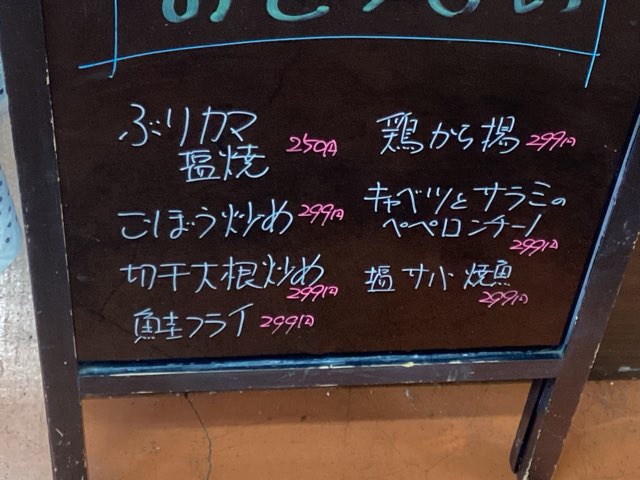 ぶりカマ
塩焼 250円
ごぼう炒め 299円
切干大根炒め
299円
鮭フライ 299円
鶏から揚 299円
キャベツとサラミの
ペペロンチーノ
299円
塩サバ焼魚
299円